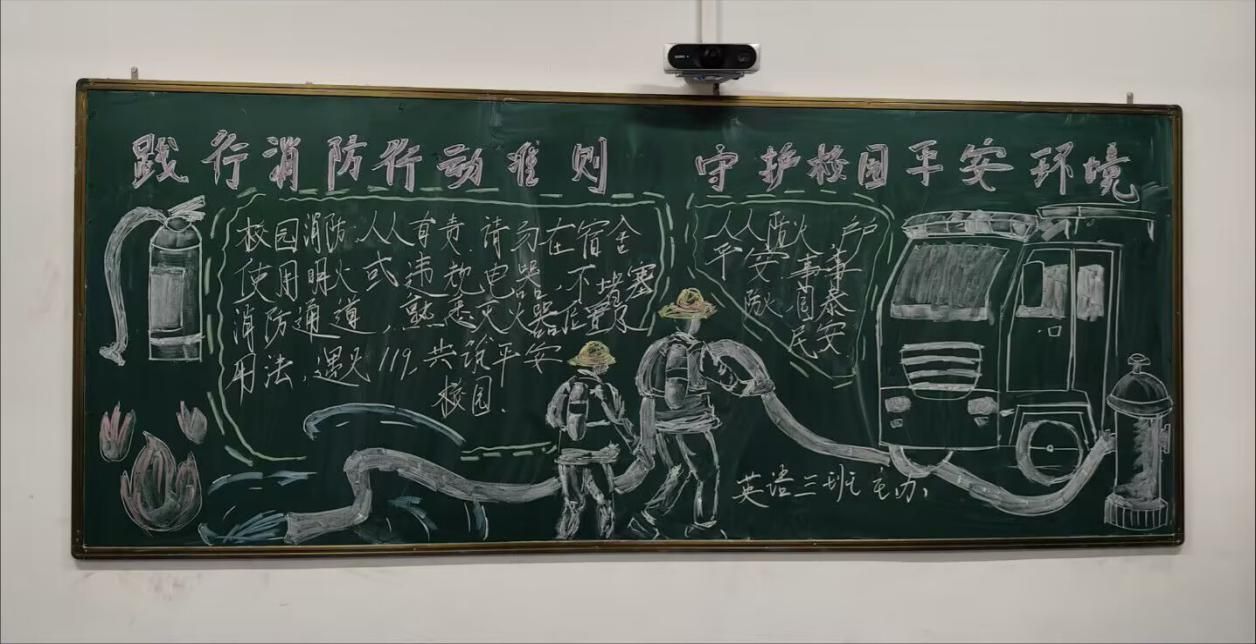 践行消防行动准则 守护校园平安环境
校园消防,人人有责,请勿在宿舍
使用明火或违规电器,不堵塞
消防通道,熟悉灭火器位置及
用法,遇火119,共说平安
校园.
人人防火 户户
平安 事事
防火 国泰
民安
英语三班主办